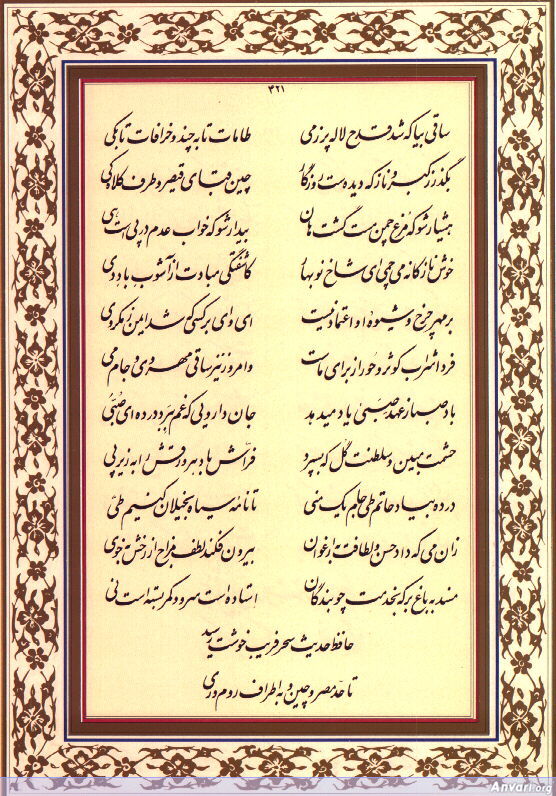 ۴۲۱
ساقی بیا که شد قدح لاله پر ز می طامات تا به چند و خرافات تا بکی
بگذر ز کبر و ناز که دیده ست روزگار چین قبای قیصر و طرف کلاه کی
هشیار شو که مرغ چمن مست گشت هان بیدار شو که خواب عدم در پی است هی
خوش نازکانه می چمی ای شاخ نوبهار کاشفتگی مبادت از آشوب باد دی
بر مهر چرخ و شیوه او اعتماد نیست ای وای بر کسی که شد ایمن ز مکر وی
فردا شراب کوثر و حور از برای ماست و امروز نیز ساقی مهروی و جام می
باد صبا ز عهد صبی یاد میدهد جان دارویی که غم ببرد در ده ای صبی
حشمت مبین و سلطنت گل که بسپرد فراش باد هر ورقش را به زیر پی
در ده بیاد حاتم طی جام یک منی تا نامه سیاه بخیلان کنیم طی
زان می که داد حسن و لطافت به ارغوان بیرون فکند لطف مزاج از رخش به خوی
مسند به باغ بر که بخدمت چو بندگان استاده است سرو و کمر بسته است نی
حافظ حدیث سحر فریب خوشت رسید
تا حد مصر و چین و به اطراف روم و ری
Anvari.org